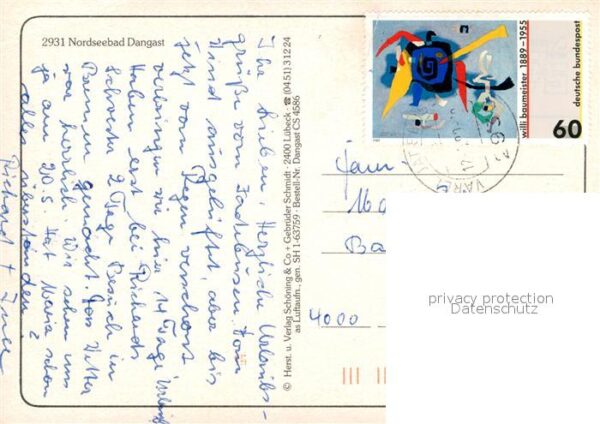 2931 Nordseebad Dangast
Ihr Lieben, Herzliche Urlaubs-
grüße vom Jadebusen. Vom
Wind ausgelüftet, aber bis
jetzt vom Regen verschont
verbringen wir hier 14 Tage Urlaub
Haben erst bei Richards
Schwester 2 Tage Besuch in
Bremen gemacht. Das Wetter
war herrlich. Wir sehen uns
ja am 20.5. Hat Maria schon
alles überstanden?
Richard +
© Herst. u. Verlag Schöning & Co + Gebrüder Schmidt · 2400 Lübeck · ☎ (0451) 31224
as Luftaufn., gen. SH 1-63759 · Bestell-Nr. Dangast CS 4586
willi baumeister 1889-1955
deutsche bundespost
60
VAREL
Fam.
Ba
4000
privacy protection
Datenschutz